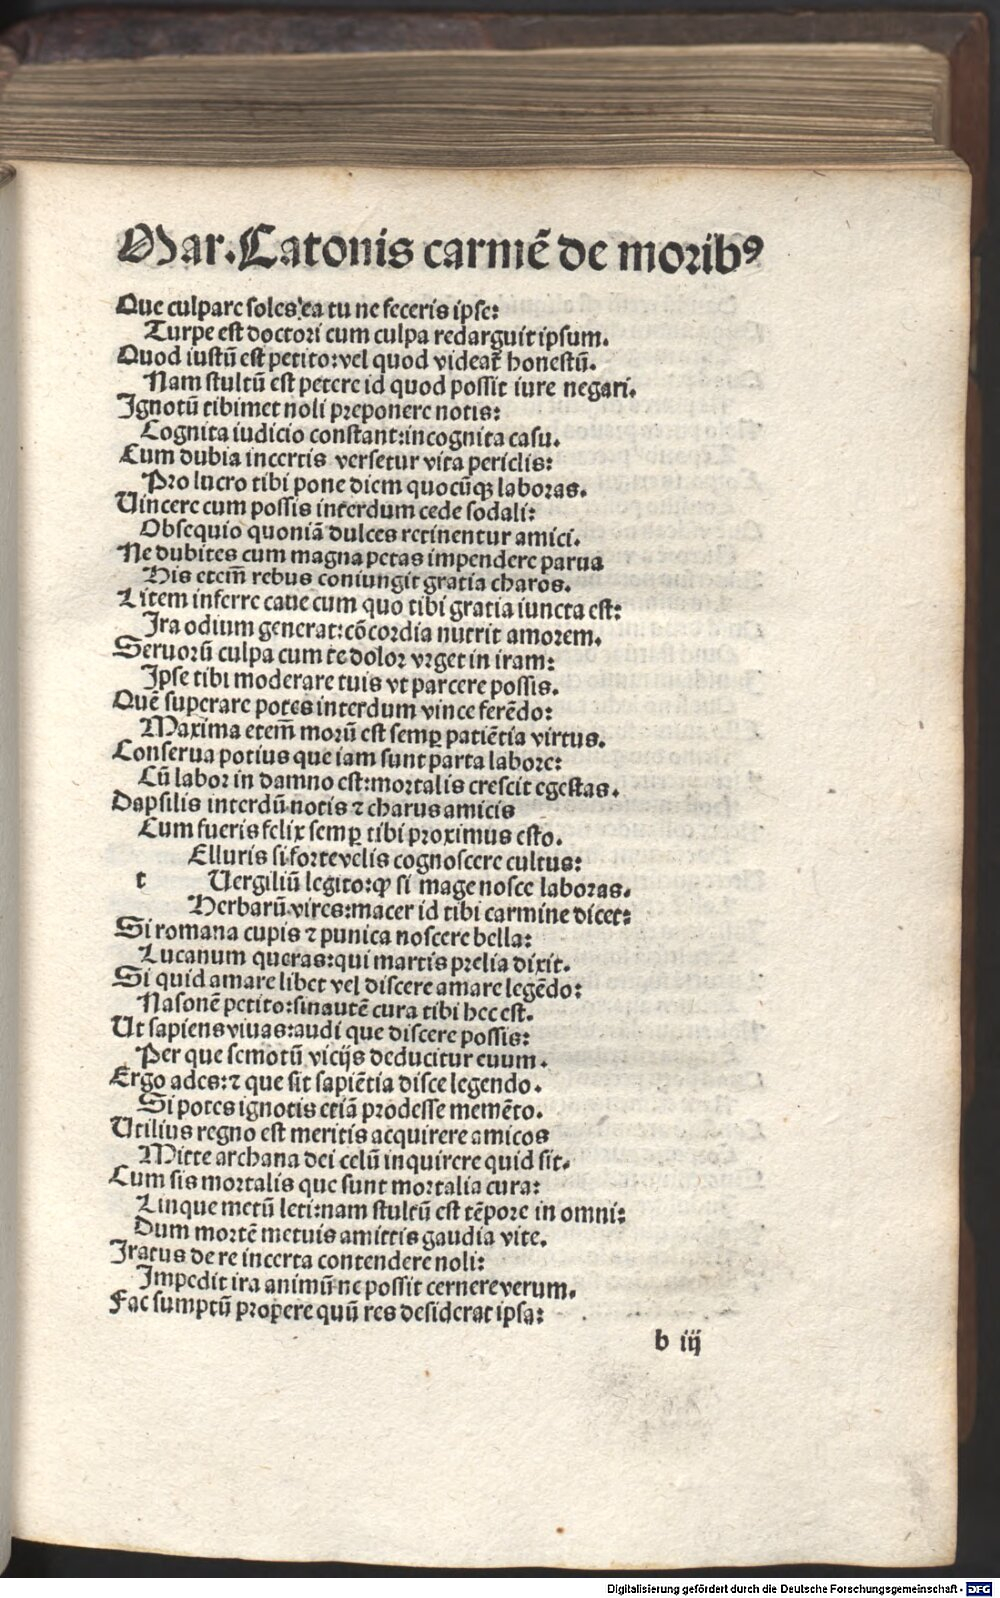 Mar. Catonis carmē de moribꝰ
Que culpare soles: ea tu ne feceris ipse:
Turpe est doctori cum culpa redarguit ipsum.
Quod iustū est petito: vel quod videat᷑ honestū.
Nam stultū est petere id quod possit iure negari.
Ignotū tibimet noli preponere notis:
Cognita iudicio constant: incognita casu.
Cum dubia incertis versetur vita periclis:
Pro lucro tibi pone diem quocūqꝫ laboras.
Vincere cum possis interdum cede sodali:
Obsequio quoniā dulces retinentur amici.
Ne dubites cum magna petas impendere parua
His etem̄ rebus coniungit gratia charos.
Litem inferre caue cum quo tibi gratia iuncta est:
Ira odium generat: cōcordia nutrit amorem.
Seruorū culpa cum te dolor vrget in iram:
Ipse tibi moderare tuis vt parcere possis.
Quē superare potes interdum vince ferēdo:
Maxima etem̄ morū est semꝑ patiētia virtus.
Conserua potius que iam sunt parta labore:
Cū labor in damno est: mortalis crescit egestas.
Dapsilis interdū notis ⁊ charus amicis
Cum fueris felix semꝑ tibi proximus esto.
Elluris si forte velis cognoscere cultus:
t Vergiliū legito: ꝙ si mage nosce laboras.
Herbarū vires: macer id tibi carmine dicet:
Si romana cupis ⁊ punica noscere bella:
Lucanum queras: qui martis prelia dixit.
Si quid amare libet vel discere amare legēdo:
Nasonē petito: sinautē cura tibi hec est.
Ut sapiens viuas: audi que discere possis:
Per que semotū vicijs deducitur euum.
Ergo ades: ⁊ que sit sapiētia disce legendo.
Si potes ignotis etiā prodesse memēto.
Utilius regno est meritis acquirere amicos
Mitte archana dei celū inquirere quid sit.
Cum sis mortalis que sunt mortalia cura:
Linque metū leti: nam stultū est tēpore in omni:
Dum mortē metuis amittis gaudia vite.
Iratus de re incerta contendere noli:
Impedit ira animū ne possit cernere verum.
Fac sumptū propere quū res desiderat ipsa:
b iij
Digitalisierung gefördert durch die Deutsche Forschungsgemeinschaft - DFG